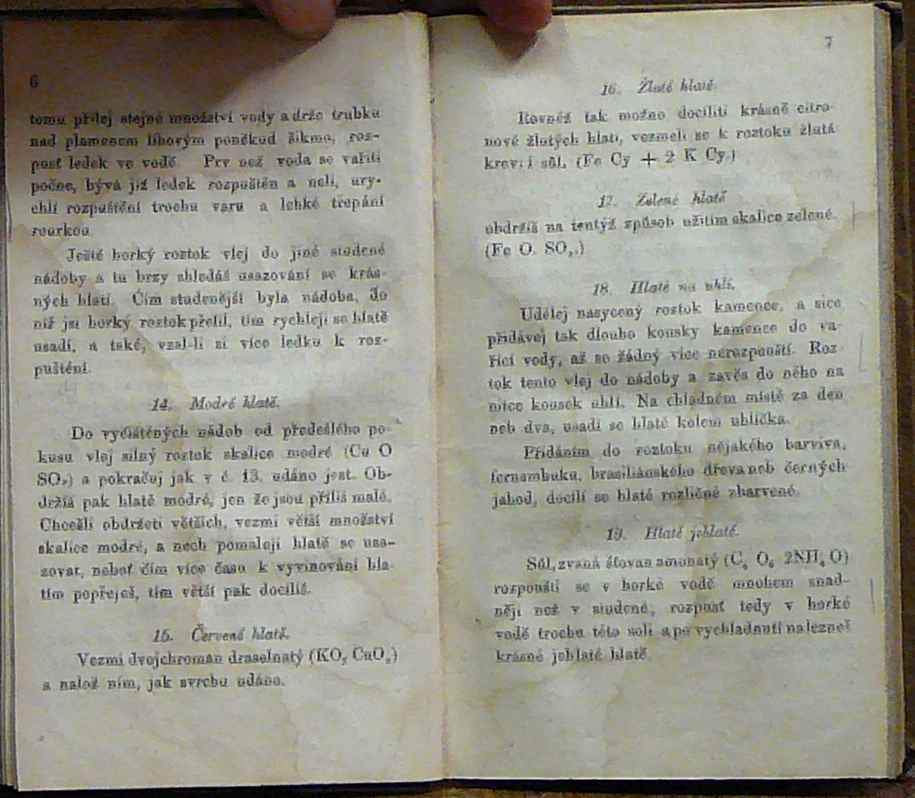 6
tomu přilej stejné množství vody a drže trubku
nad plamenem lihovým poněkud šikmo, roz-
pusť ledek ve vodě. Prv než voda se vařiti
počne, bývá již ledek rozpuštěn a neli, ury-
chlí rozpuštění trochu varu a lehké třepání
rourkou.
Ještě horký roztok vlej do jiné studené
nádoby a tu brzy shledáš usazování se krás-
ných hlatí. Čím studenější byla nádoba, do
níž jsi horký roztok přelil, tím rychleji se hlatě
usadí, a také, vzal-li si více ledku k roz-
puštění.
14. Modré hlatě.
Do vyčištěných nádob od předešlého po-
kusu vlej silný roztok skalice modré (Cu O
SO₃) a pokračuj jak v č. 13. udáno jest. Ob-
držíš pak hlatě modré, jen že jsou příliš malé.
Chcešli obdržeti větších, vezmi větší množství
skalice modré, a nech pomaleji hlatě se usa-
zovat, neboť čím více času k vyvinování hla-
tím popřeješ, tím větší pak docílíš.
15. Červené hlatě.
Vezmi dvojchroman draselnatý (KO, CuO₃)
a nalož ním, jak svrchu udáno.
7
16. Žluté hlatě.
Rovněž tak možno docíliti krásně citro-
nově žlutých hlatí, vezmeli se k roztoku žlutá
krevní sůl. (Fe Cy + 2 K Cy.)
17. Zelené hlatě
obdržíš na tentýž způsob užitím skalice zelené.
(Fe O. SO₃.)
18. Hlatě na uhlí.
Udělej nasycený roztok kamence, a sice
přidávej tak dlouho kousky kamence do va-
řící vody, až se žádný více nerozpouští. Roz-
tok tento vlej do nádoby a zavěs do něho na
nitce kousek uhlí. Na chladném místě za den
neb dva, usadí se hlatě kolem uhlíčka.
Přidáním do roztoku nějakého barviva,
fernambuku, brasiliánského dřeva neb černých
jahod, docílí se hlatě rozličně zbarvené.
19. Hlatě jehlaté.
Sůl, zvaná šťovan amonatý (C₄ O₆ 2NH₄ O)
rozpouští se v horké vodě mnohem snad-
něji než v studené, rozpusť tedy v horké
vodě trochu této soli a po vychladnutí nalezneš
krásné jehlaté hlatě.